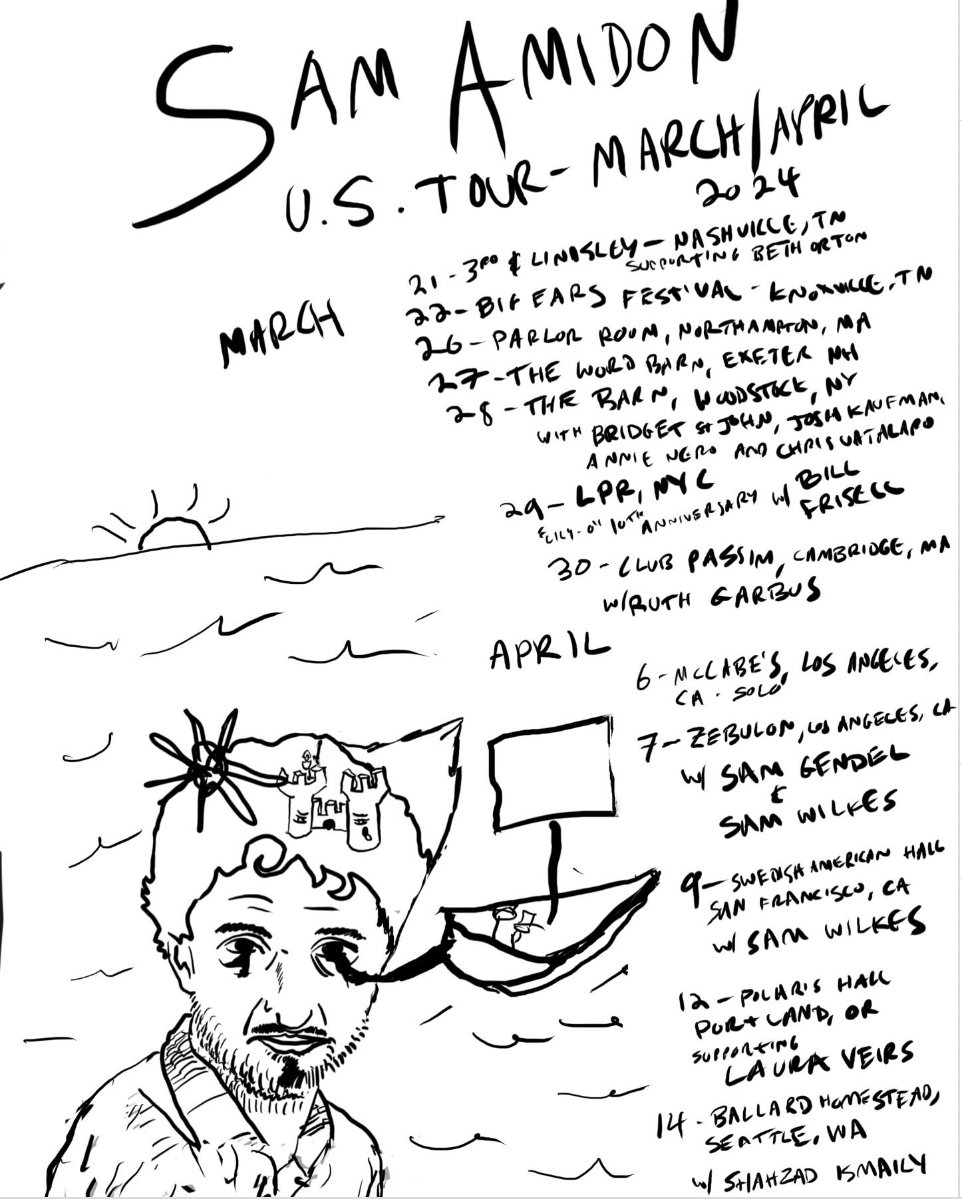 SAM AMIDON
U.S. TOUR - MARCH/APRIL
2024
MARCH
21 - 3RD & LINDSLEY - NASHVILLE, TN
SUPPORTING BETH ORTON
22 - BIG EARS FESTIVAL - KNOXVILLE, TN
26 - PARLOR ROOM, NORTHAMPTON, MA
27 - THE WORD BARN, EXETER NH
28 - THE BARN, WOODSTOCK, NY
WITH BRIDGET ST JOHN, JOSH KAUFMAN,
ANNIE NERO AND CHRIS VATALARO
29 - LPR, NYC
"LILY-O" 10TH ANNIVERSARY W/ BILL
FRISELL
30 - CLUB PASSIM, CAMBRIDGE, MA
W/RUTH GARBUS
APRIL
6 - MCCABE'S, LOS ANGELES,
CA - SOLO
7 - ZEBULON, LOS ANGELES, CA
W/ SAM GENDEL
&
SAM WILKES
9 - SWEDISH AMERICAN HALL
SAN FRANCISCO, CA
W/ SAM WILKES
12 - POLARIS HALL
PORTLAND, OR
SUPPORTING
LAURA VEIRS
14 - BALLARD HOMESTEAD,
SEATTLE, WA
W/ SHAHZAD ISMAILY